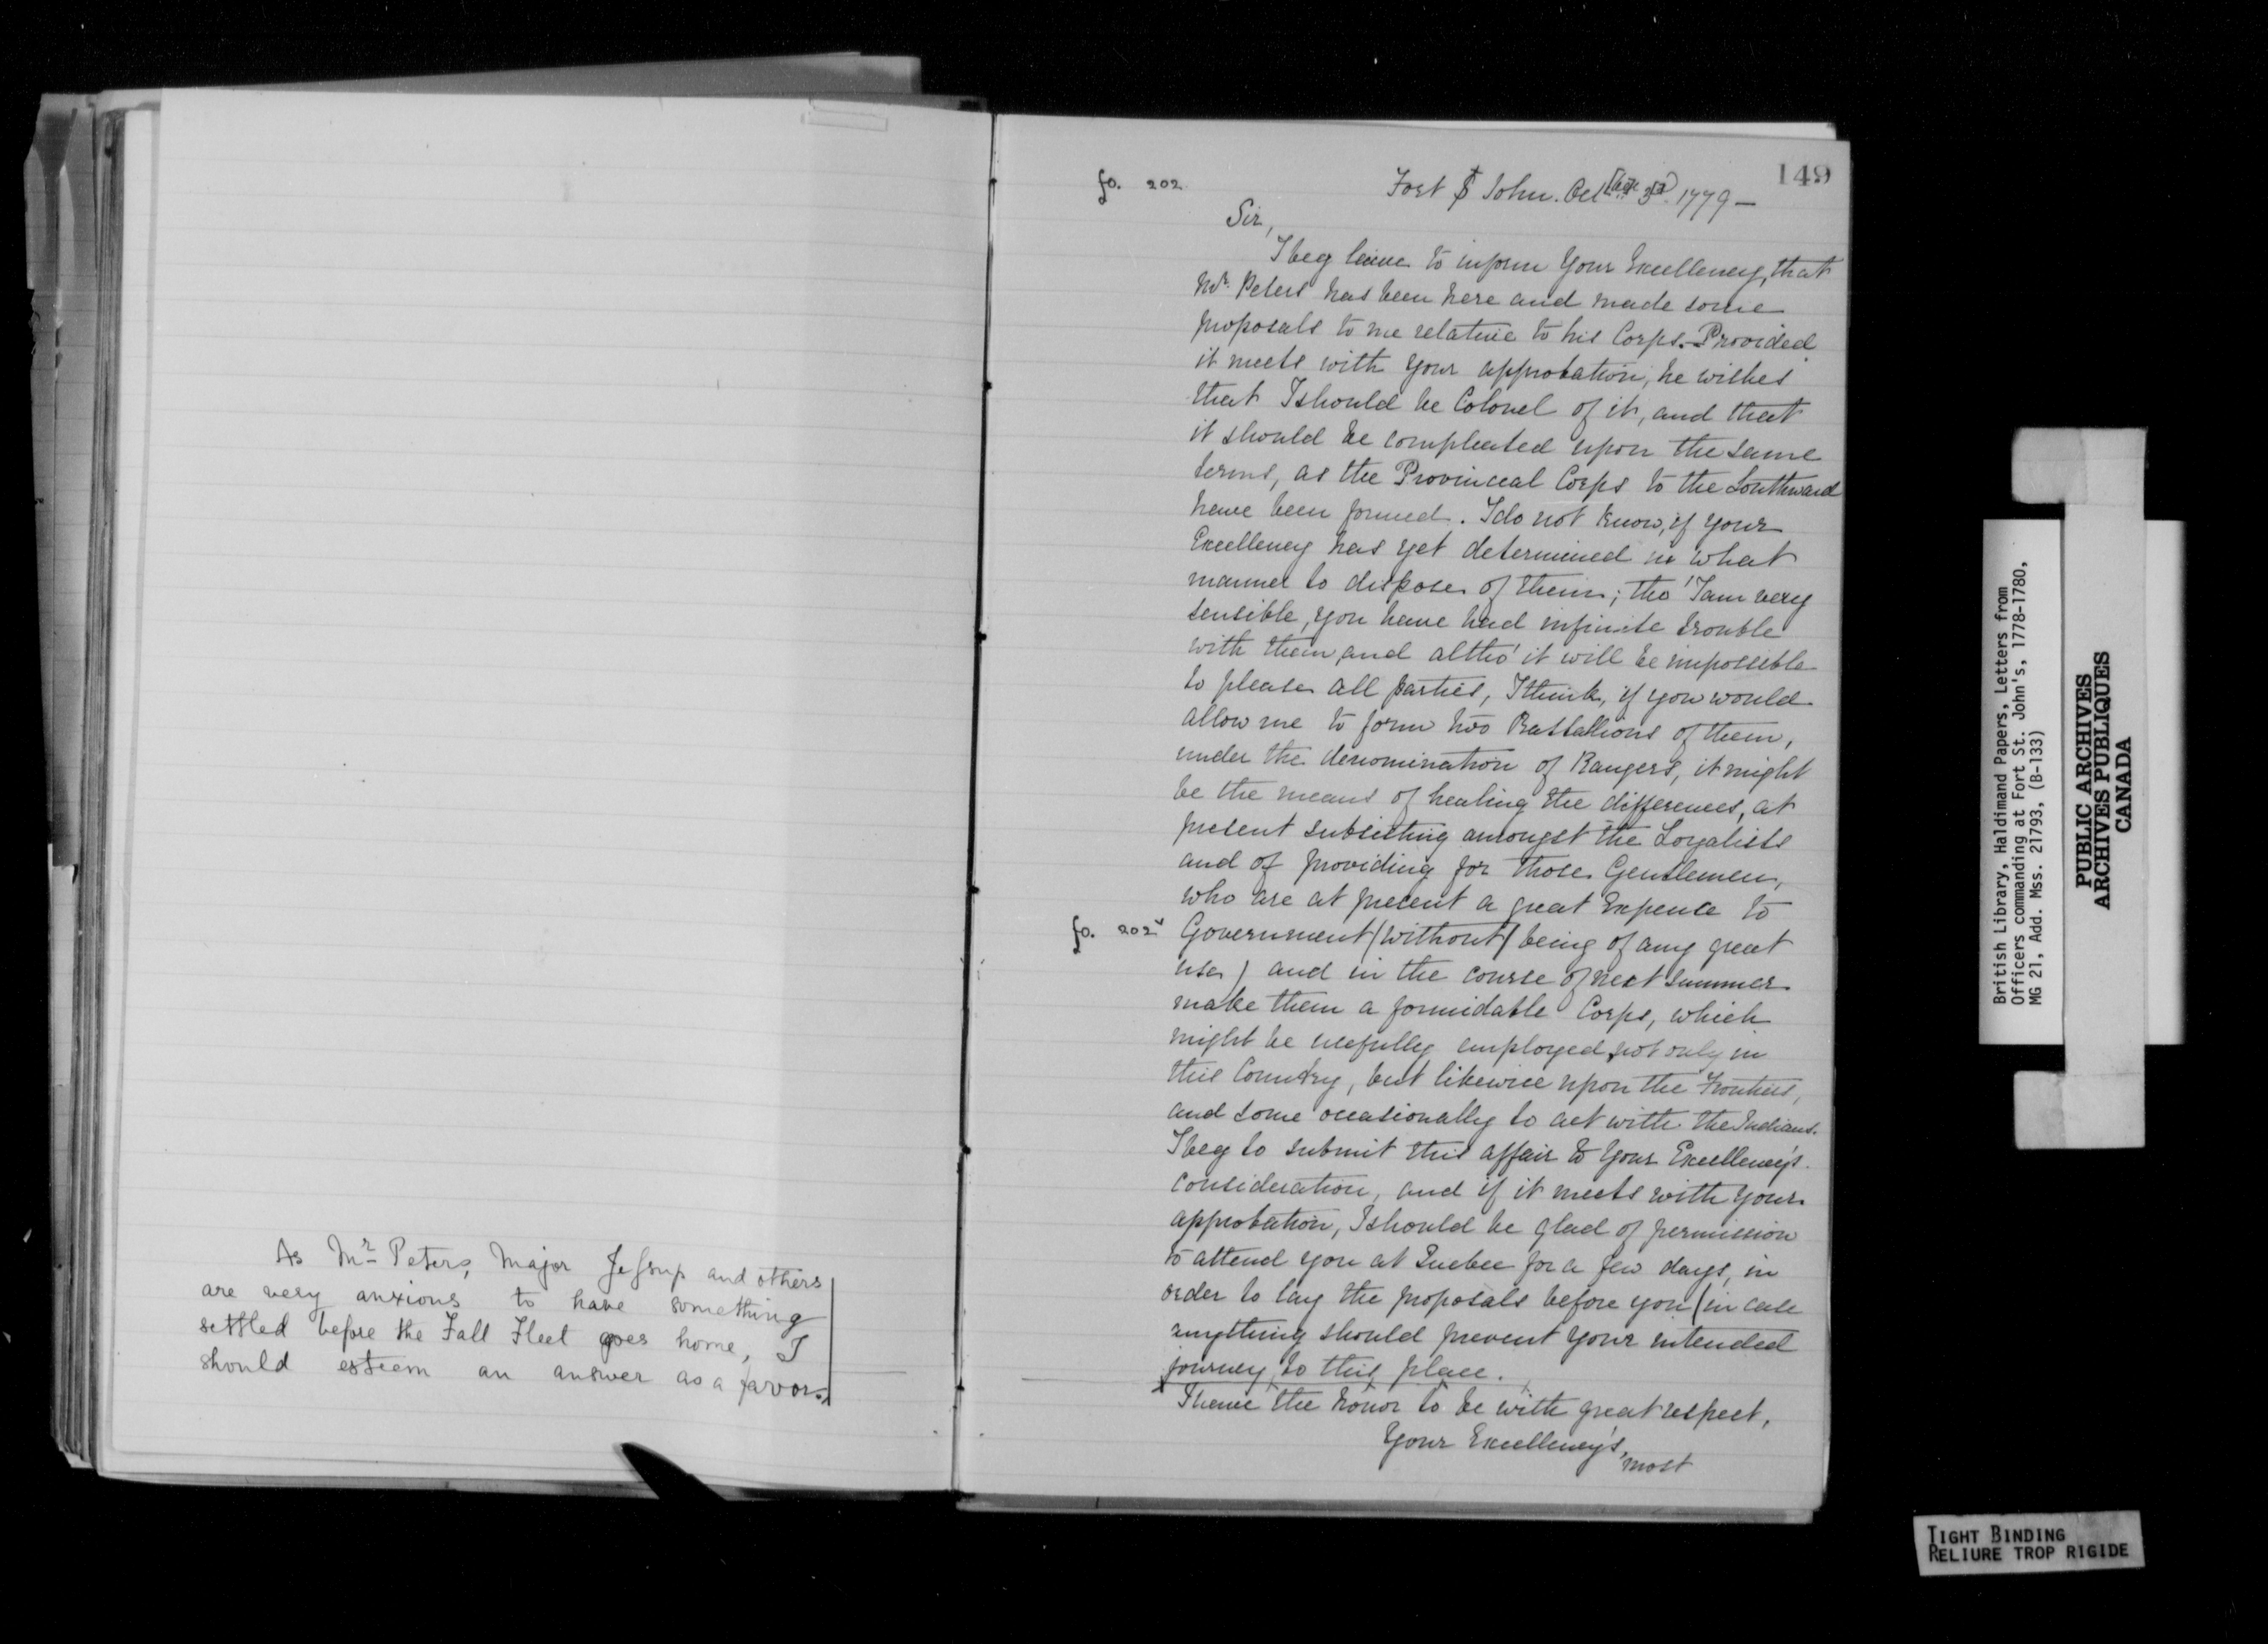 As Mr Peters, Major Jessup and others
are very anxious to have something
settled before the Fall Fleet goes home, I
should esteem an answer as a favor.
149
fo. 202
Fort St John. Oct 1779 —
Sir,
I beg leave to inform Your Excellency, that
Mr. Peters has been here and made some
proposals to me relative to his Corps. Provided
it meets with your approbation, he wishes
that I should be Colonel of it, and that
it should be compleated upon the same
terms, as the Provincial Corps to the Southward
have been formed. I do not know, if your
Excellency has yet determined in what
manner to dispose of them; tho' I am very
sensible, you have had infinite trouble
with them, and altho' it will be impossible
to please all parties, I think, if you would
allow me to form two Battallions of them,
under the denomination of Rangers, it might
be the means of healing the differences, at
present subsisting amongst the Loyalists
and of providing for those Gentlemen,
who are at present a great Expence to
fo. 202v Government (without being of any great
use) and in the course of next summer
make them a formidable Corps, which
might be usefully employed, not only in
this Country, but likewise upon the Frontiers,
and some occasionally to act with the Indians.
I beg to submit this affair to Your Excellency's
consideration, and if it meets with your
approbation, I should be glad of permission
to attend you at Quebec for a few days, in
order to lay the proposals before you (in case
anything should prevent your intended
journey to this place.
I have the honor to be with great respect,
Your Excellency's,
most
British Library, Haldimand Papers, Letters from
Officers commanding at Fort St. John's, 1778-1780,
MG 21, Add. Mss. 21793, (B-133)
PUBLIC ARCHIVES
ARCHIVES PUBLIQUES
CANADA
TIGHT BINDING
RELIURE TROP RIGIDE